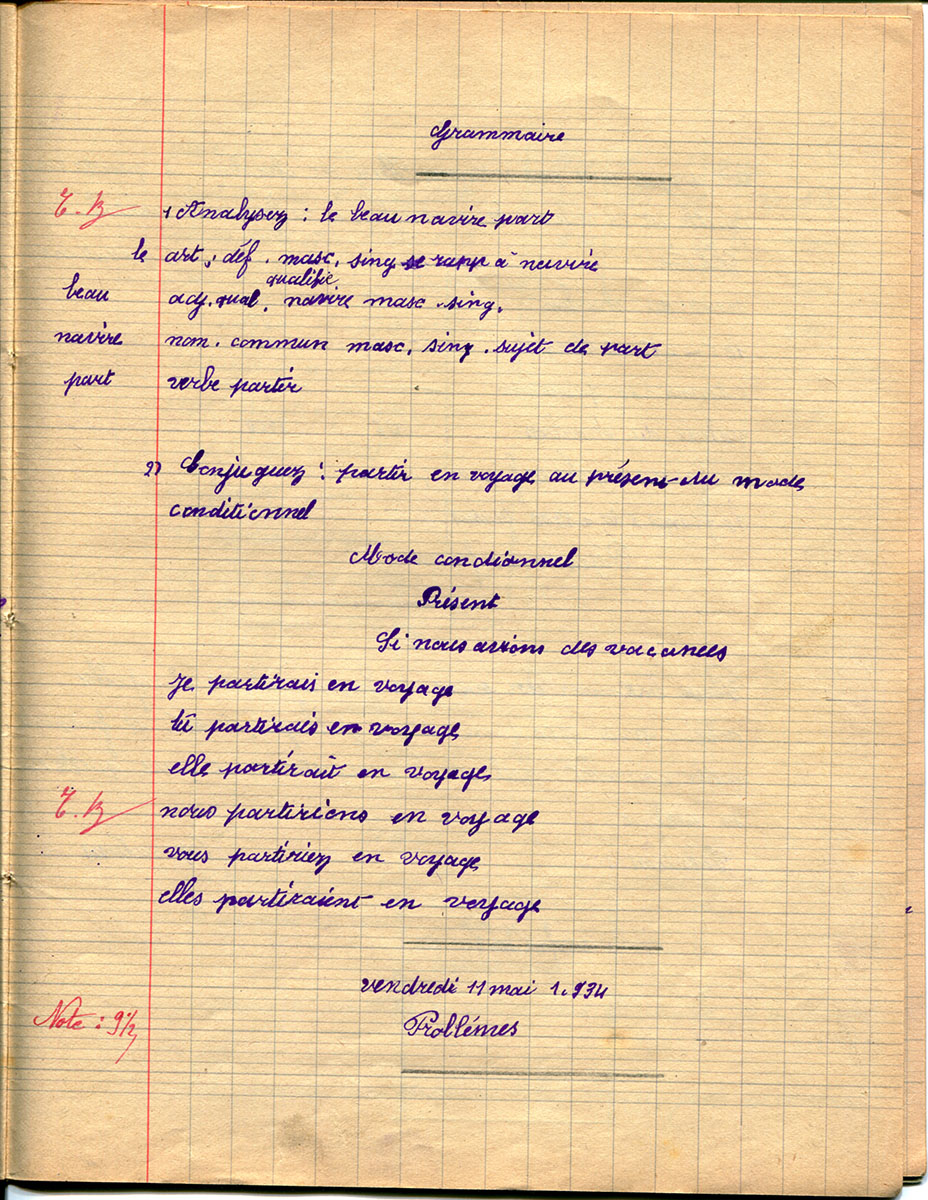 Grammaire
T. B
1 Analysez : le beau navire part
le art. déf. masc. sing se rapp à navire
qualifie
beau adj. qual. navire masc. sing.
navire nom. commun masc. sing. sujet de part
part verbe partir
2) Conjuguez : partir en voyage au présent du mode
conditionnel
Mode condionnel
Présent
Si nous avions des vacances
je partirais en voyage
tu partirais en voyage
elle partirait en voyage
T. B nous partirions en voyage
vous partiriez en voyage
elles partiraient en voyage
vendredi 11 mai 1.934
Note : 9½ Problémes